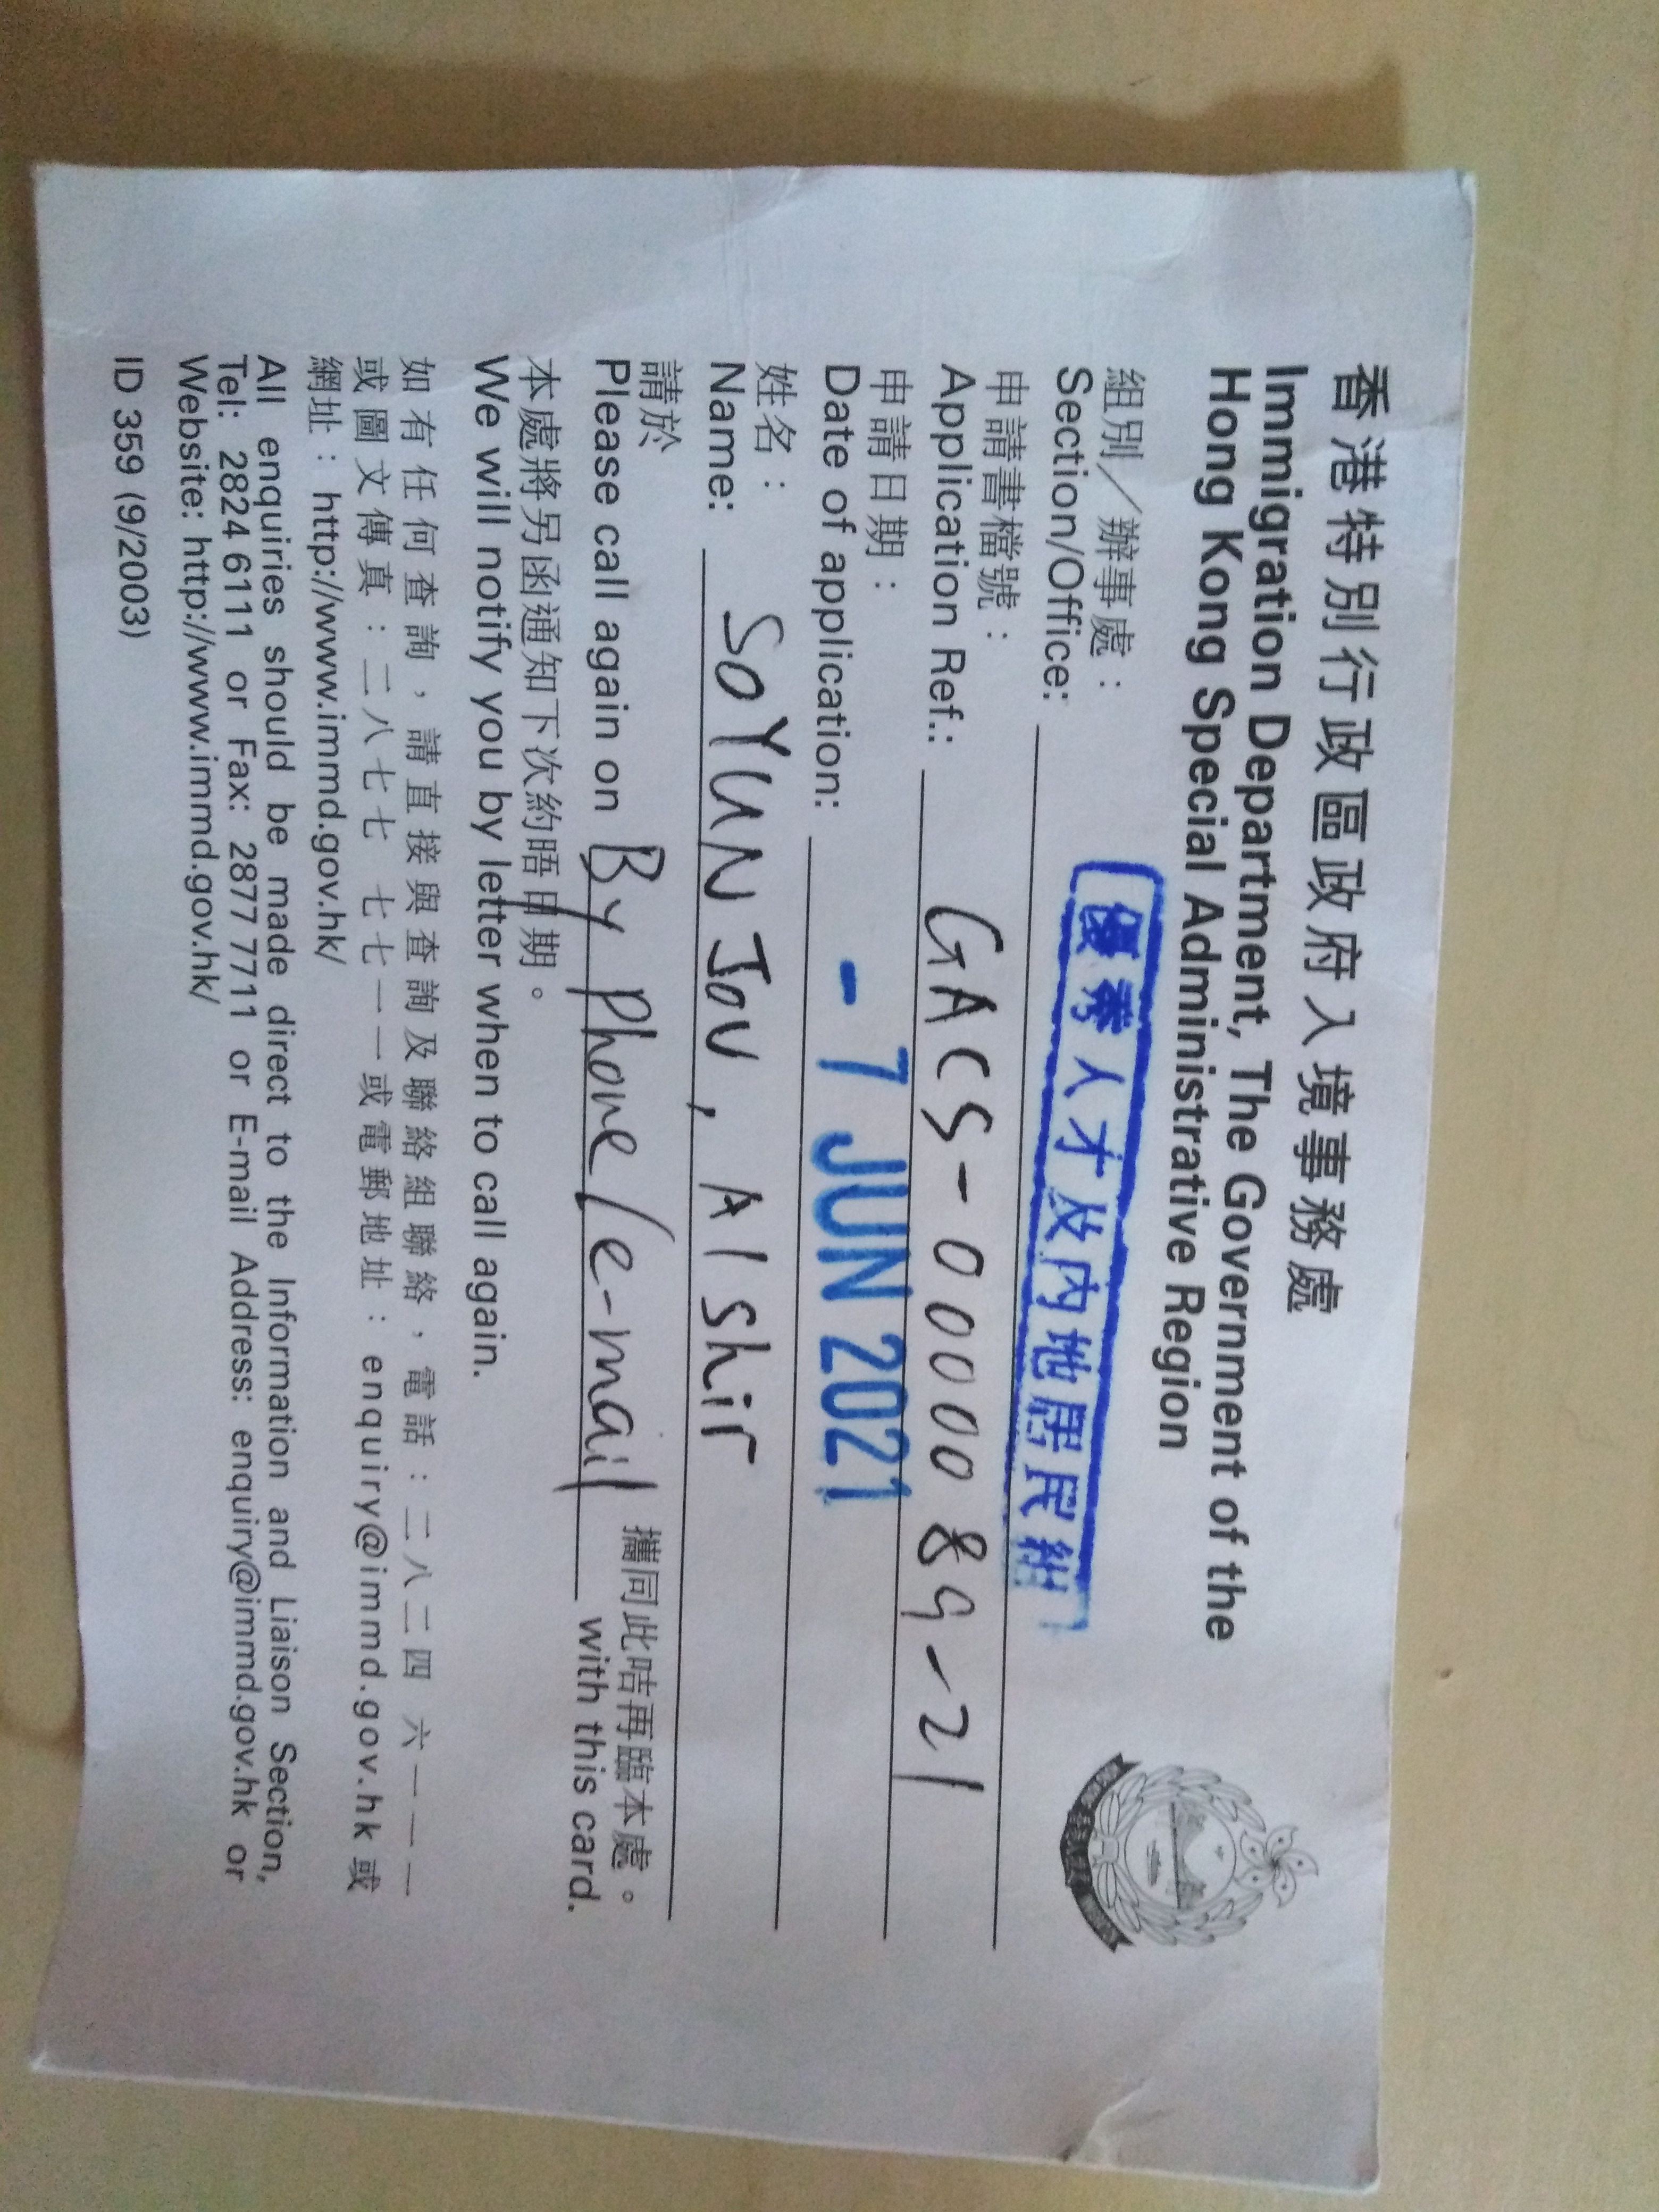 香港特別行政區政府入境事務處
Immigration Department, The Government of the
Hong Kong Special Administrative Region
組別／辦事處：
Section/Office: 優秀人才及內地居民組
申請書檔號：
Application Ref.: GACS-0000089-21
申請日期：
Date of application: - 7 JUN 2021
姓名：
Name: SOYUNJOV, Alshir
請於 攜同此咭再臨本處。
Please call again on By phone/e-mail with this card.
本處將另函通知下次約晤日期。
We will notify you by letter when to call again.
如有任何查詢，請直接與查詢及聯絡組聯絡，電話：二八二四 六一一一
或圖文傳真：二八七七 七七一一或電郵地址：enquiry@immd.gov.hk 或
網址：http://www.immd.gov.hk/
All enquiries should be made direct to the Information and Liaison Section,
Tel: 2824 6111 or Fax: 2877 7711 or E-mail Address: enquiry@immd.gov.hk or
Website: http://www.immd.gov.hk/
ID 359 (9/2003)